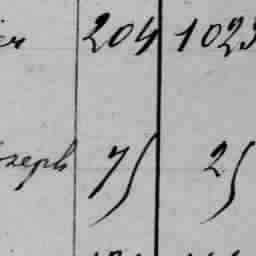 er 204 1023
oseph 75 25